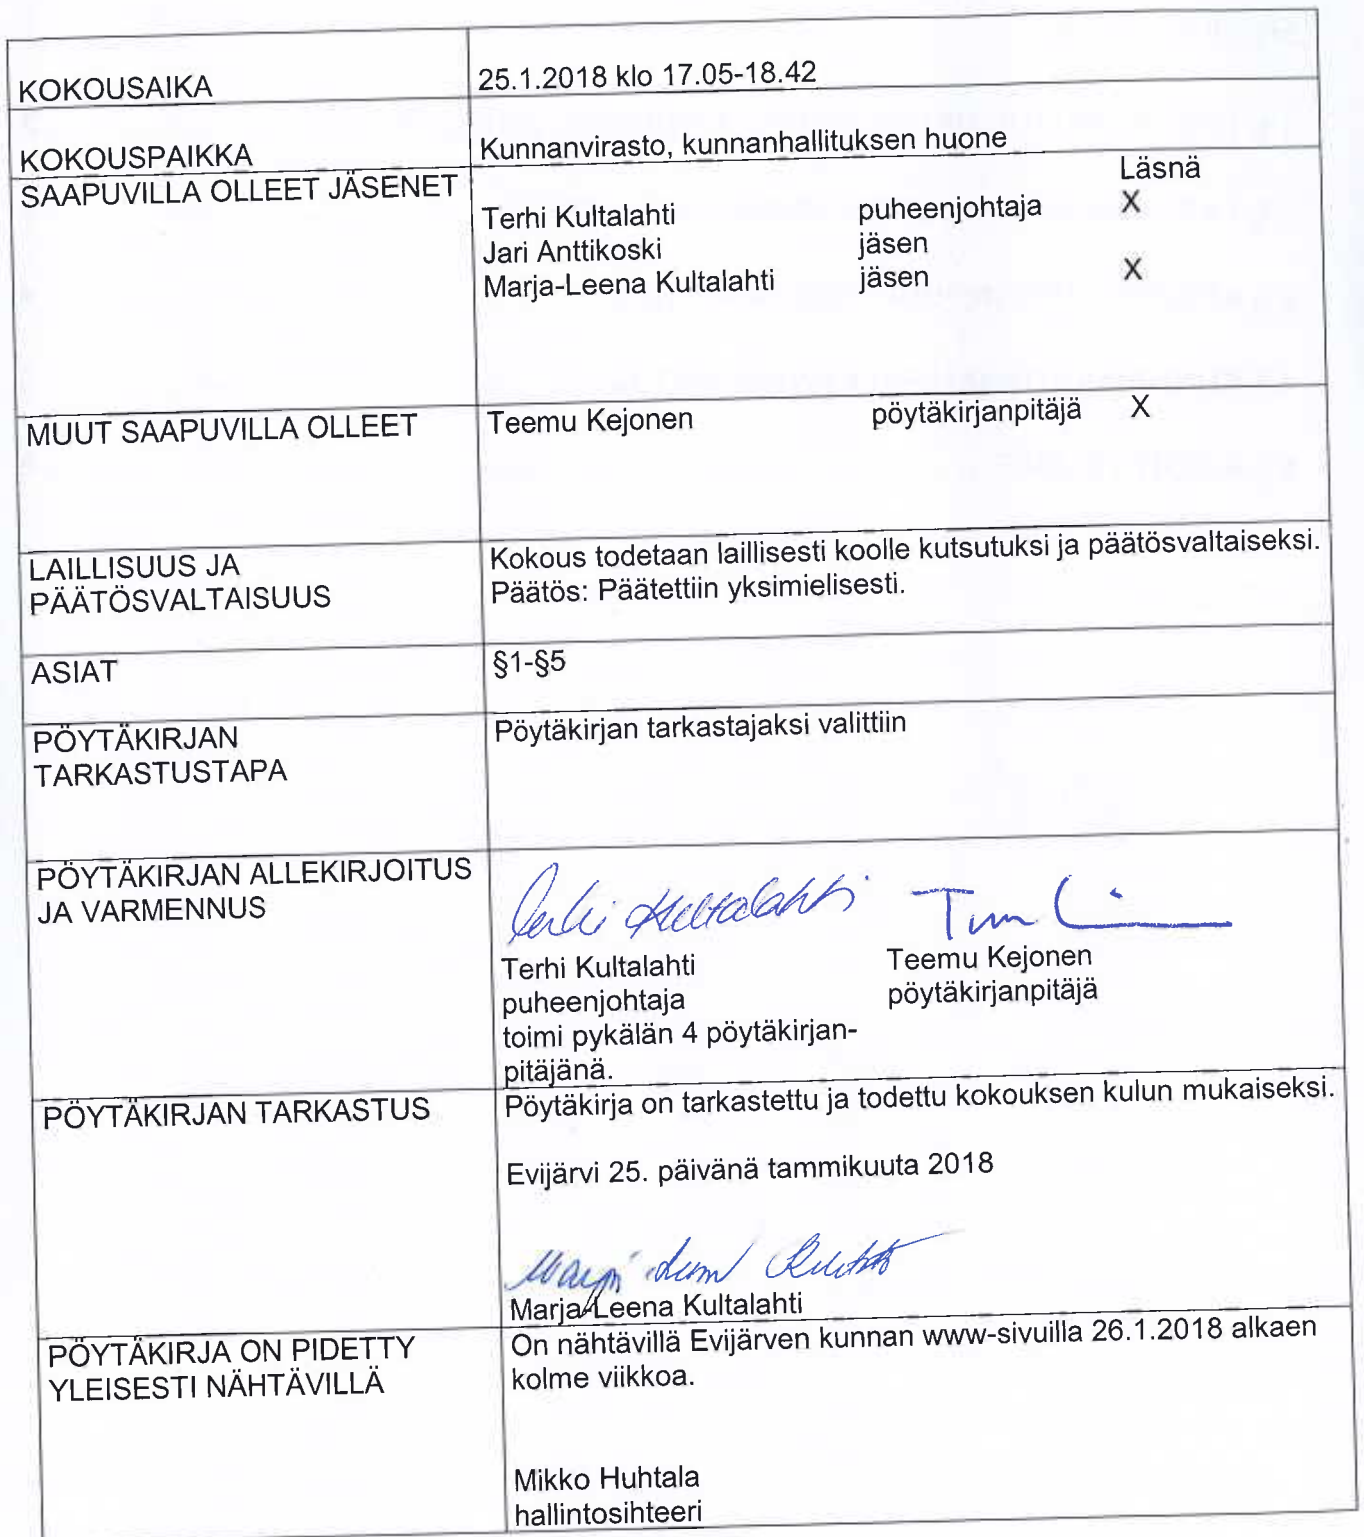 KOKOUSAIKA 25.1.2018 klo 17.05-18.42
KOKOUSPAIKKA Kunnanvirasto, kunnanhallituksen huone
SAAPUVILLA OLLEET JÄSENET Läsnä
Terhi Kultalahti puheenjohtaja X
Jari Anttikoski jäsen
Marja-Leena Kultalahti jäsen X
MUUT SAAPUVILLA OLLEET Teemu Kejonen pöytäkirjanpitäjä X
LAILLISUUS JA PÄÄTÖSVALTAISUUS
Kokous todetaan laillisesti koolle kutsutuksi ja päätösvaltaiseksi.
Päätös: Päätettiin yksimielisesti.
ASIAT §1-§5
PÖYTÄKIRJAN
TARKASTUSTAPA
Pöytäkirjan tarkastajaksi valittiin
PÖYTÄKIRJAN ALLEKIRJOITUS
JA VARMENNUS
Terhi Kultalahti
Terhi Kultalahti Teemu Kejonen
puheenjohtaja pöytäkirjanpitäjä
toimi pykälän 4 pöytäkirjan-
pitäjänä.
PÖYTÄKIRJAN TARKASTUS Pöytäkirja on tarkastettu ja todettu kokouksen kulun mukaiseksi.
Evijärvi 25. päivänä tammikuuta 2018
Marja-Leena Kultalahti
PÖYTÄKIRJA ON PIDETTY
YLEISESTI NÄHTÄVILLÄ
On nähtävillä Evijärven kunnan www-sivuilla 26.1.2018 alkaen
kolme viikkoa.
Mikko Huhtala
hallintosihteeri